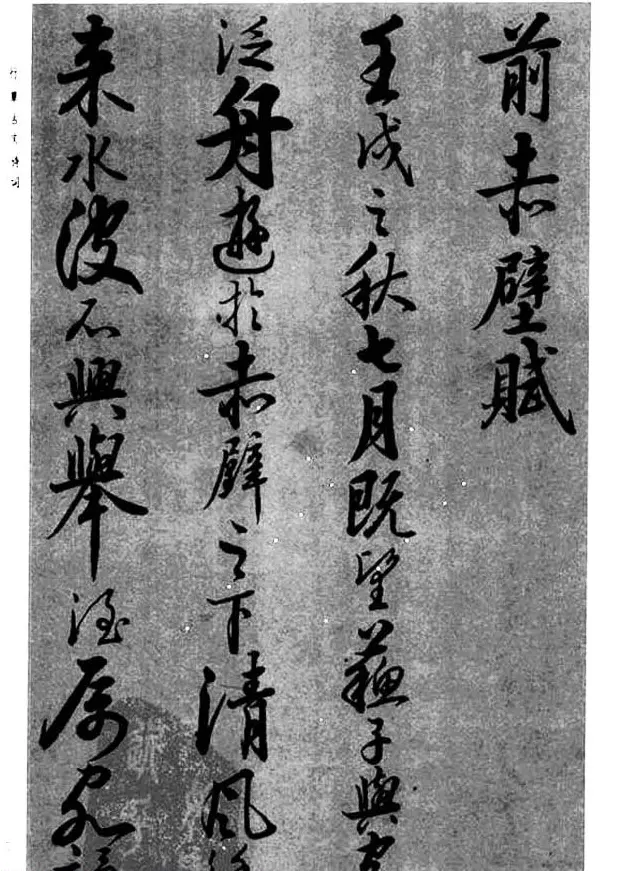 前赤壁賦
壬戌之秋七月既望蘇子與客
泛舟遊於赤壁之下清風徐
来水波不興舉酒属客